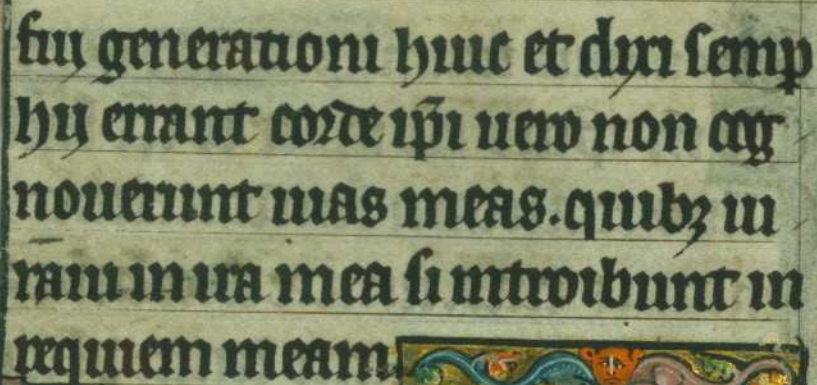 fui generationi huic et dixi semp̲
hij errant corde ip̄i uero non cog
nouerunt uias meas. quibꝫ iu
raui in ira mea si introibunt in
requiem meam